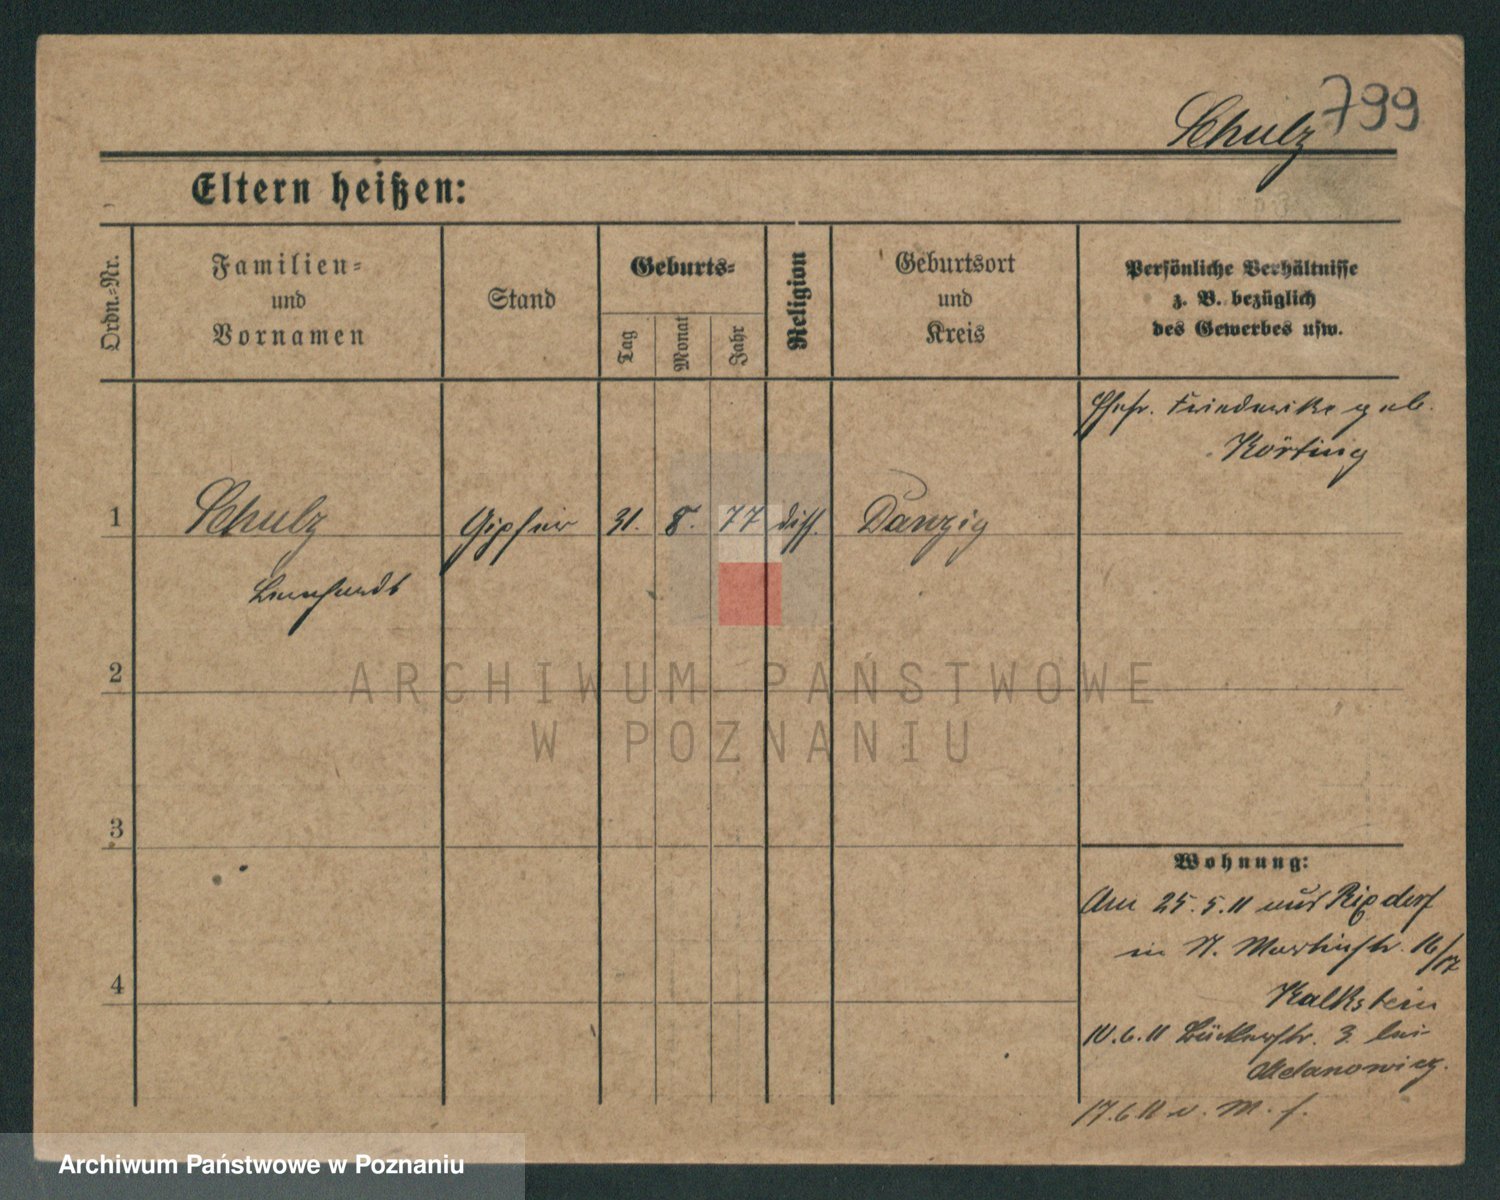 799
Schulz
Eltern heißen:
Ordn.-Nr.
Familien-
und
Vornamen
Stand
Geburts-
Tag
Monat
Jahr
Religion
Geburtsort
und
Kreis
Persönliche Verhältnisse
z. B. bezüglich
des Gewerbes usw.
Ehefr. Friederike geb.
Körting
1
Schulz
Gipser
31.
8.
77
diss.
Danzig
Bernhardt
2
3
4
Wohnung:
Am 25.5.11 aus Rixdorf
in St. Martinstr. 16/17
Kalkstein
10.6.11 Bäckerstr. 3 bei
Adamowicz.
17.6.11 v. M. f.
ARCHIWUM PAŃSTWOWE
W POZNANIU
Archiwum Państwowe w Poznaniu